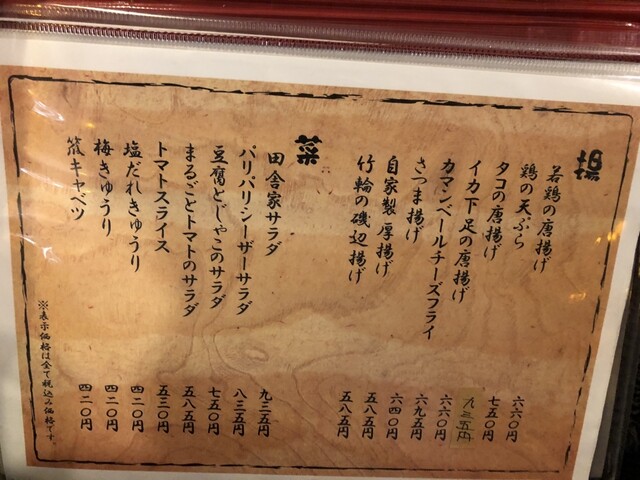 揚
若鶏の唐揚げ 六六〇円
鶏の天ぷら 七五〇円
タコの唐揚げ 九三五円
イカ下足の唐揚げ 六六〇円
カマンベールチーズフライ 六九五円
さつま揚げ 六四〇円
自家製厚揚げ 五八五円
竹輪の磯辺揚げ 五八五円
菜
田舎家サラダ 九三五円
パリパリ・シーザーサラダ 八三五円
豆腐とじゃこのサラダ 七五〇円
まるごとトマトのサラダ 五八五円
トマトスライス 五三〇円
塩だれきゅうり 四二〇円
梅きゅうり 四二〇円
キャベツ 四二〇円
※表示価格は全て税込み価格です。